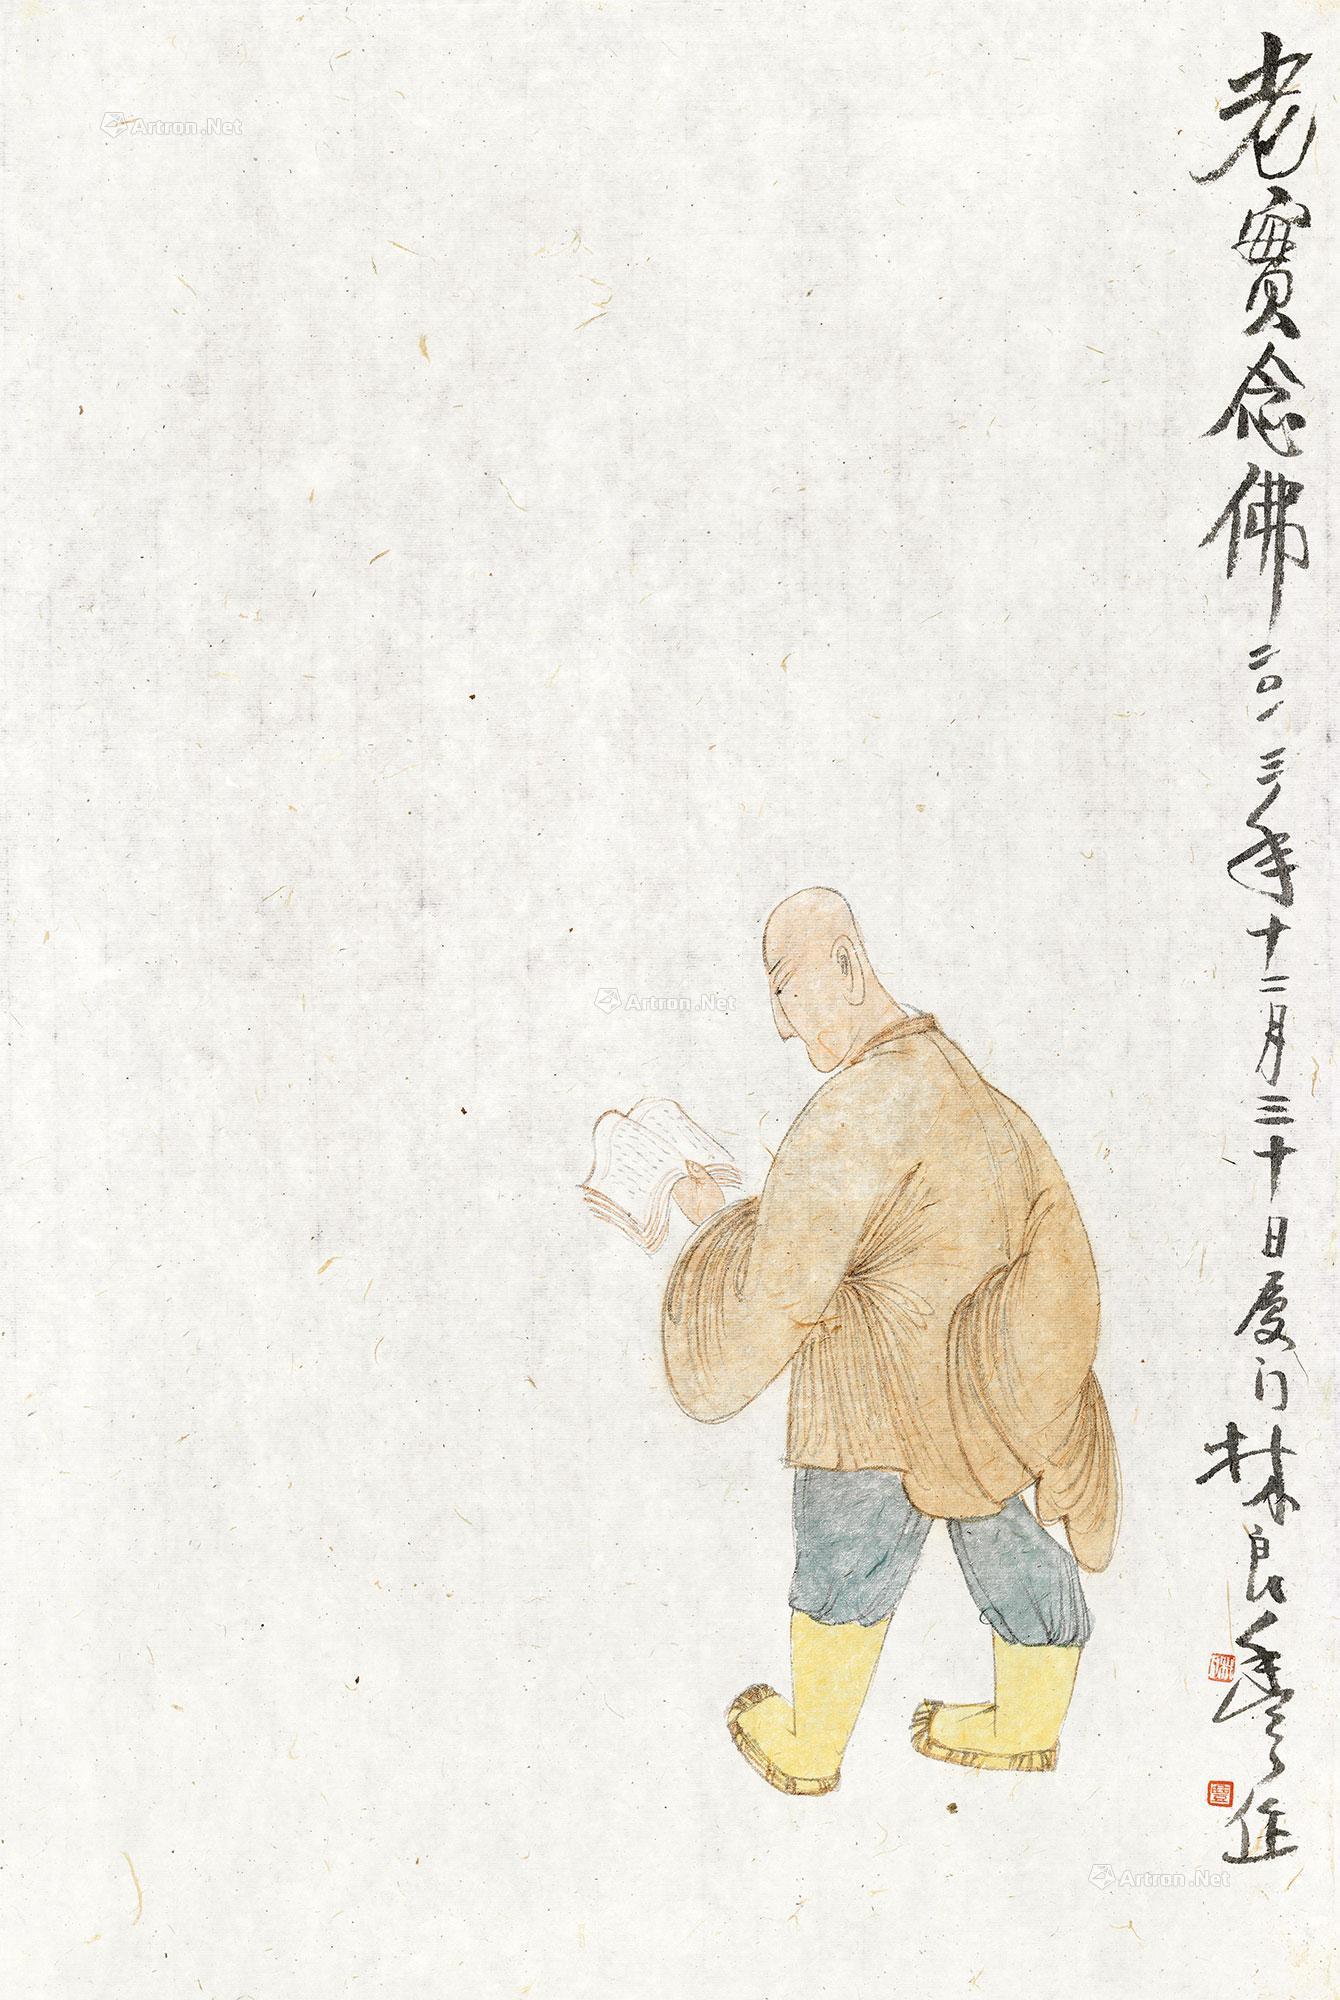 老實念佛 二〇一三年十二月三十日厦门林良丰作
Artron.Net
Artron.Net
Artron.Net